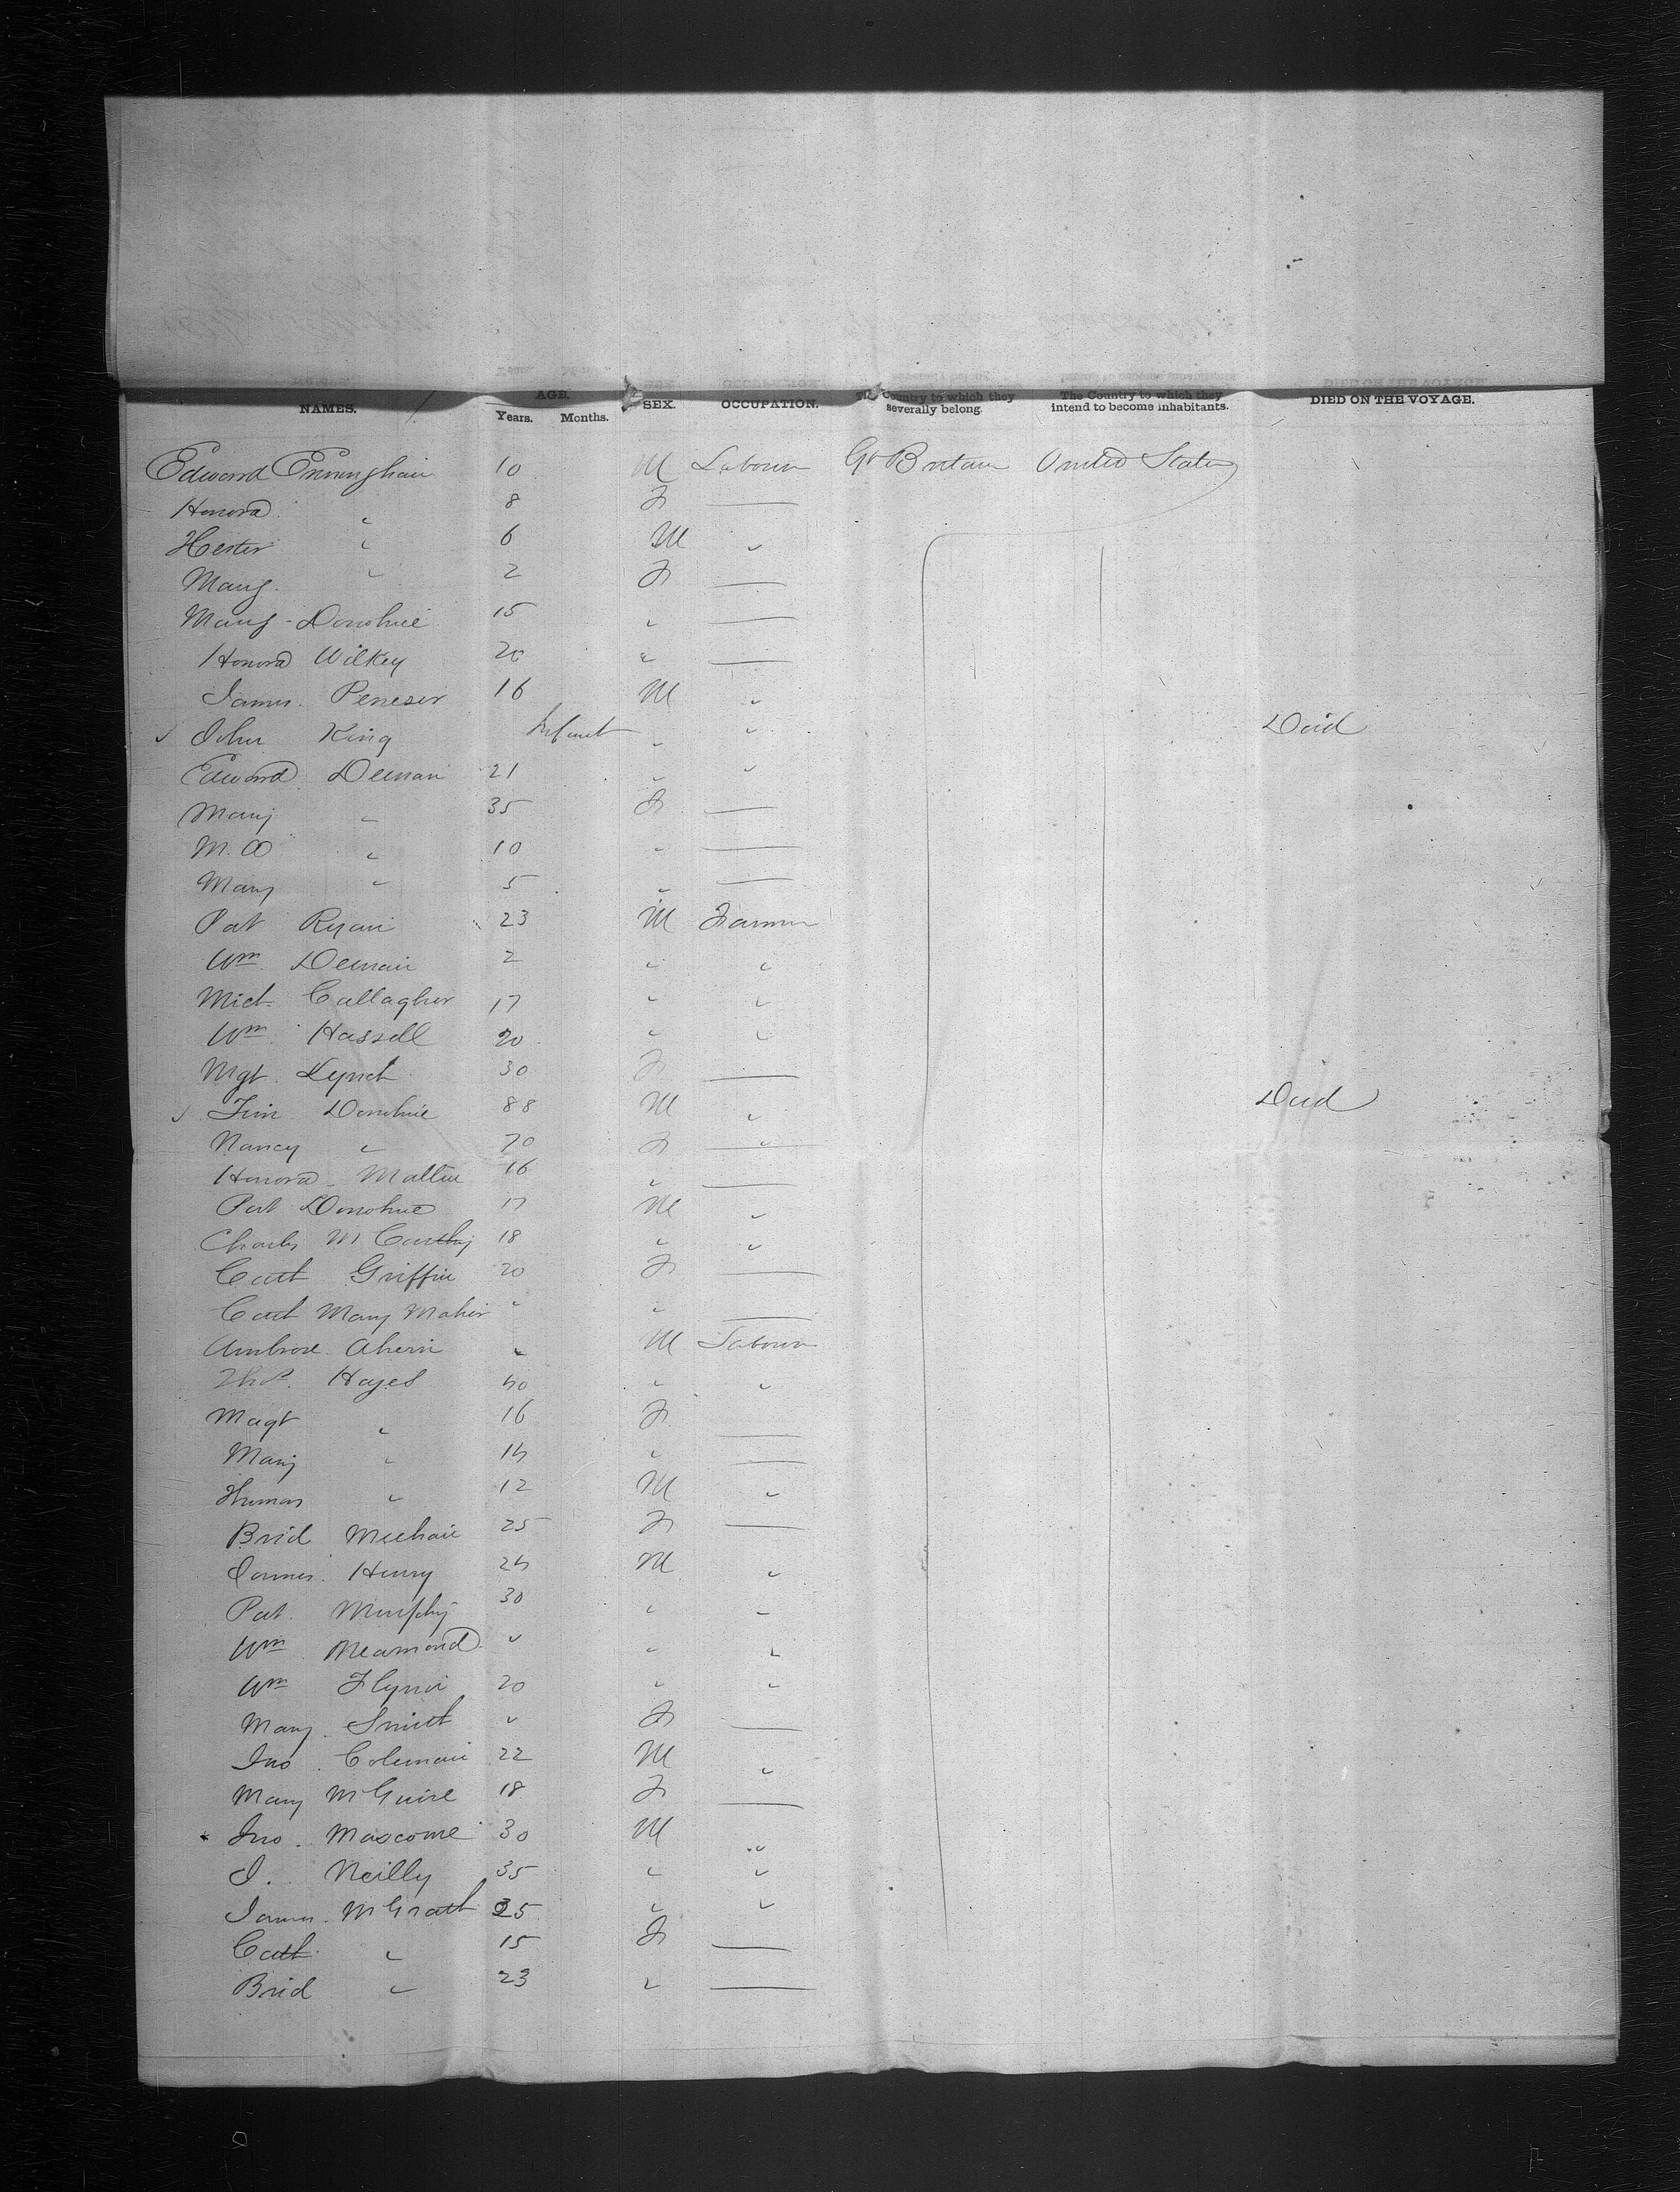 NAMES. AGE. Years. Months. SEX. OCCUPATION. The Country to which they severally belong. The Country to which they intend to become inhabitants. DIED ON THE VOYAGE.
Edward 10 M Labourer Gt Britain United States
Honora " 8 F —
Hester " 6 M "
Mary " 2 F —
Mary Donohue 15 " —
Honora Wilkey 20 " —
James 16 M "
John King Infant " " Died
Edward 21 " "
Mary " 35 F —
M. A " 10 " —
Mary " 5 " —
Pat Ryan 23 M Farmer
Wm 2 " "
Mich Callagher 17 " "
Wm Hassell 20 " "
Mgt Lynch 30 F —
Tim Donohue 88 M " Died
Nancy " 70 F "
Honora 16 " —
Pat Donohue 17 M "
Charles McCarthy 18 " "
Cath Griffin 20 F —
Cath Mary Maher " " —
Ambrose Ahern " M Labourer
Thos. Hayes 40 " "
Magt " 16 F —
Mary " 14 " —
Thomas " 12 M "
Brid Meehan 25 F —
James Henry 24 M "
Pat Murphy 30 " "
Wm " " "
Wm Flynn 20 " "
Mary Smith " F —
Jno Coleman 22 M "
Mary McGuire 18 F —
Jno. 30 M "
J. Neilly 35 " "
James McGrath 35 " "
Cath " 15 F —
Brid " 23 " —